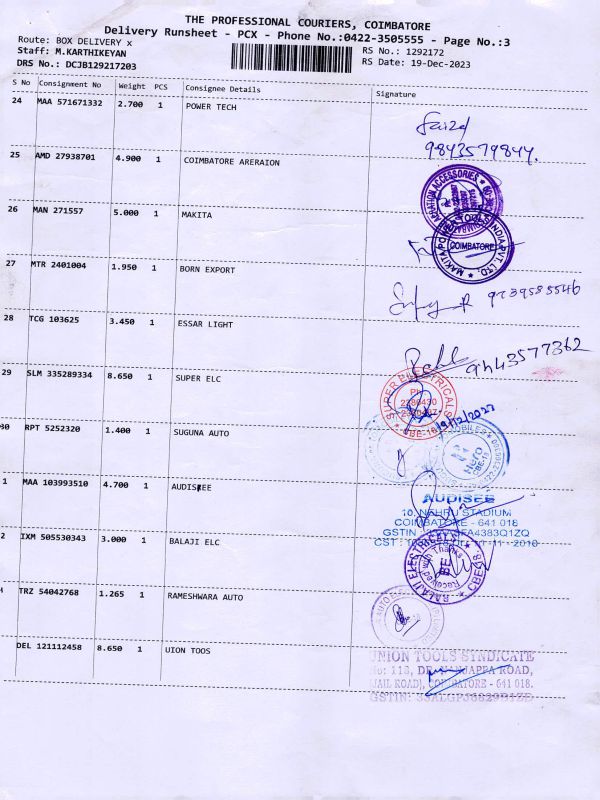 THE PROFESSIONAL COURIERS, COIMBATORE
Delivery Runsheet - PCX - Phone No.:0422-3505555 - Page No.:3
Route: BOX DELIVERY x
Staff: M.KARTHIKEYAN
DRS No.: DCJB129217203
RS No.: 1292172
RS Date: 19-Dec-2023
S No Consignment No Weight PCS Consignee Details Signature
24 MAA 571671332 2.700 1 POWER TECH
9843579844.
25 AMD 27938701 4.900 1 COIMBATORE ARERAION
26 MAN 271557 5.000 1 MAKITA
COIMBATORE
27 MTR 2401004 1.950 1 BORN EXPORT
9739585546
28 TCG 103625 3.450 1 ESSAR LIGHT
9443577362
29 SLM 335289334 8.650 1 SUPER ELC
SUPER ELECTRICALS
Ph
2380430
CBE-18
30 RPT 5252320 1.400 1 SUGUNA AUTO
1 MAA 103993510 4.700 1 AUDISEE
AUDISEE
10, NEHRU STADIUM
COIMBATORE - 641 018
GSTIN
2 IXM 505530343 3.000 1 BALAJI ELC
BALAJI ELECTRICALS
Received with Thanks
TRZ 54042768 1.265 1 RAMESHWARA AUTO
DEL 121112458 8.650 1 UION TOOS
UNION TOOLS SYNDICATE
No: 113, DR. NANJAPPA ROAD,
(JAIL ROAD), COIMBATORE - 641 018.